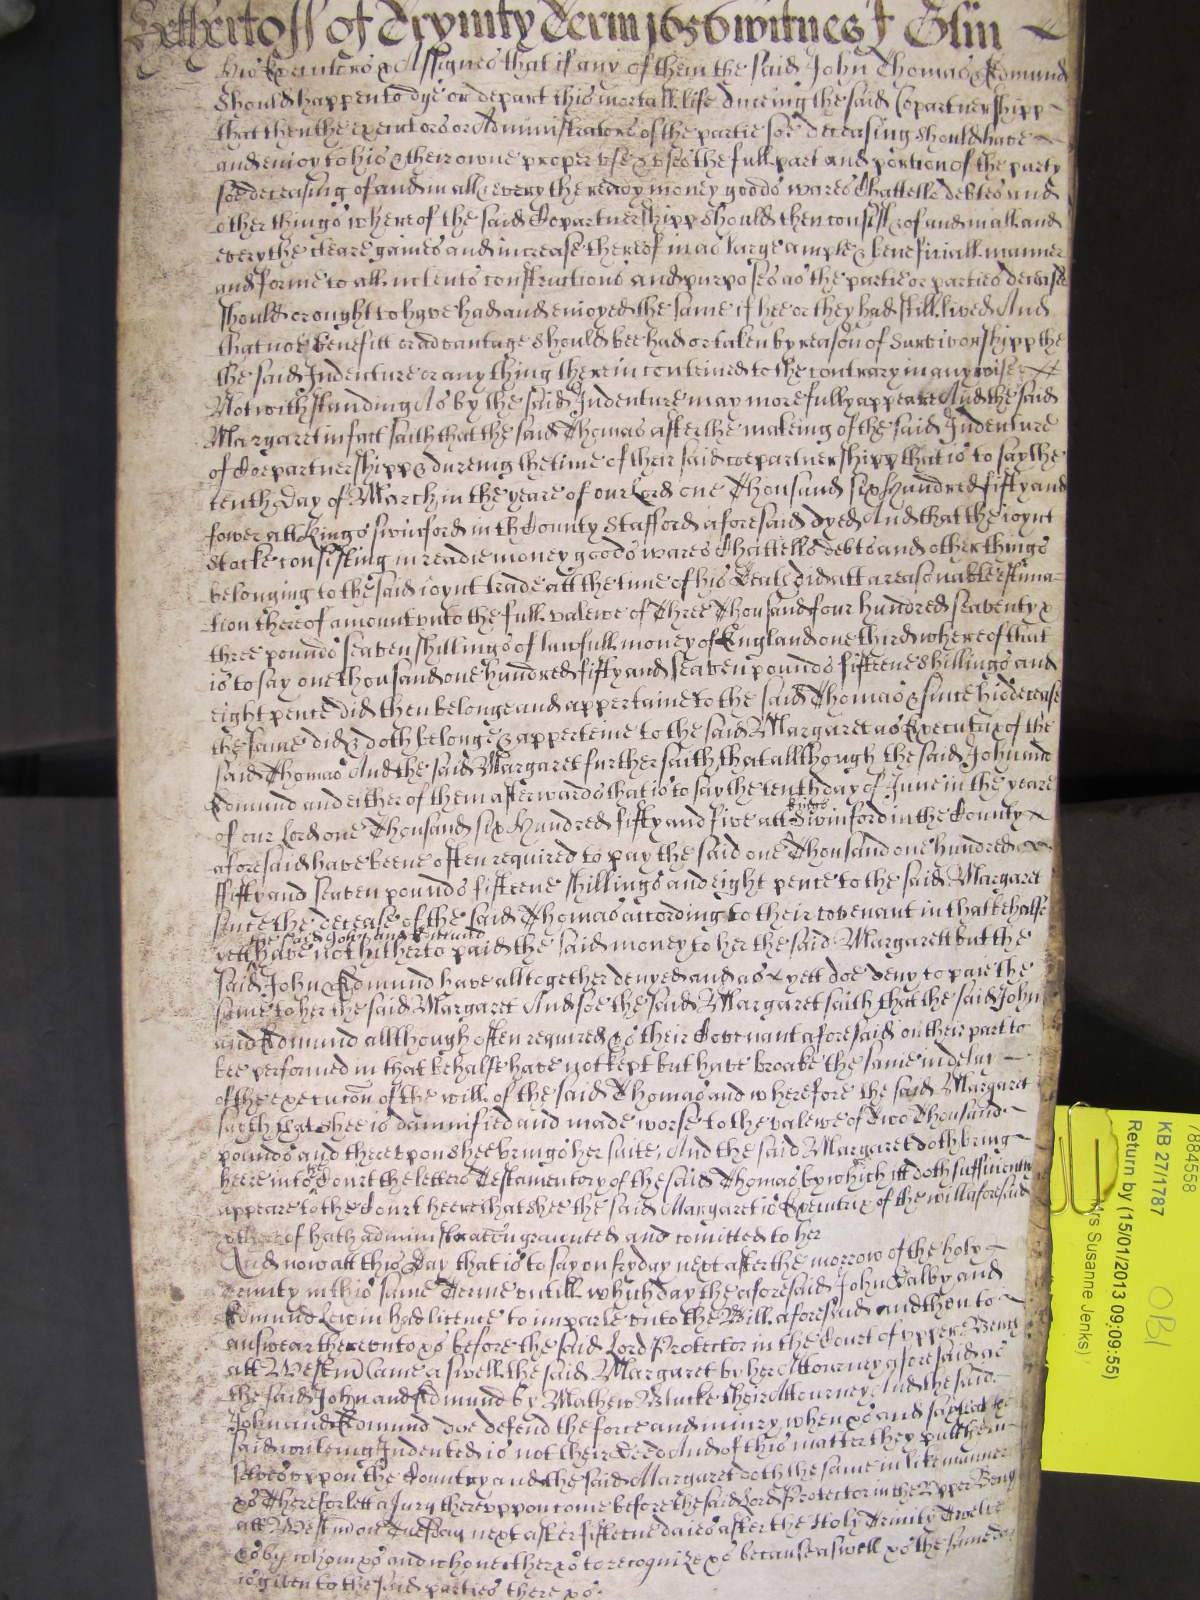 of Trynity Terme 1656 witnes J Glin
his Executors & Assignes that if any of them the said John Thomas & Edmund
should happen to dye or depart this mortall life dureing the said Copartnershipp
that then the executors or Administrators of the partie soe deceasing should have
and enioy to his & their owne proper use & uses the full part and portion of the party
soe deceasing of and in all & every the ready money goods wares Chattells debtes and
other things whereof the said Copartnershipp should then consist & of and in all and
every the cleare gaines and increase thereof in as large ample & beneficiall manner
and forme to all intents constructions and purposes as the partie or parties deceased
should or ought to have had and enioyed the same if hee or they had still lived And
that noe benefitt or advantage should bee had or taken by reason of Survivorshipp the
the said Indenture or any thing therein conteined to the contrary in any wise
Notwithstanding As by the said Indenture may more fully appeare And the said
Margaret in fact saith that the said Thomas after the makeing of the said Indenture
of Coepartnershipp & dureing the time of their said coepartnershipp that is to say the
tenth Day of March in the yeare of our Lord one Thousand six Hundred fifty and
fower att Kings swinford in the County Stafford aforesaid dyed And that the ioynt
Stocke consisting in readie money goods wares Chattells debts and other things
belonging to the said ioynt trade att the time of his Death did att a reasonable estima-
tion thereof amount unto the full valewe of Three Thousand four hundred seaventy &
three pounds seaven shillings of lawfull money of England one third whereof that
is to say one thousand one hundred fifty and seaven pounds fifteene shillings and
eight pence did then belonge and appertaine to the said Thomas & since his decease
the same did & doth belonge & apperteine to the said Margaret as Executrix of the
said Thomas And the said Margaret further saith that allthough the said John and
Edmund and either of them afterwards that is to say the tenth day of June in the yeare
of our Lord one Thousand six Hundred fifty and five att Kings Swinford in the County
aforesaid have beene often required to pay the said one Thousand one hundred
fifty and seaven pounds fifteene shillings and eight pence to the said Margaret
since the decease of the said Thomas according to their covenant in that behalfe
yett the said John and Edmund have not hitherto paid the said money to her the said Margarett but the
said John & Edmund have alltogether denyed and as yett doe deny to paie the
same to her the said Margaret And soe the said Margaret saith that the said John
and Edmund allthough often required &c their Covenant aforesaid on their part to
bee performed in that behalfe have not kept but have broake the same in delay
of the execucon of the will of the said Thomas and wherefore the said Margaret
sayth that shee is damnified and made worse to the valewe of Two Thousand
pounds and thereupon shee brings her suite, And the said Margaret doth bring
heere into the Court the letters Testamentory of the said Thomas by which itt doth sufficiently
appeare to the Court heere that shee the said Margaret is Executrix of the will aforesaid
& thereof hath administracon graunted and comitted to her
And now att this Day that is to say on fryday next after the morrow of the holy
Trinity in this same Terme untill which day the aforesaid John Dalby and
Edmund Lewin had licence to imparle unto the Bill aforesaid and then to
answear thereunto &c before the said Lord Protector in the Court of upper Bench
att Westm Came aswell the said Margaret by her Attourney aforesaid as
the said John and Edmund by Mathew Blucke their Attourney And the said
John and Edmund doe defend the force and iniury when &c and say that the
said writeing Indented is not their deed And of this matter they putt them-
selves uppon the Country and the said Margaret doth the same in like manner
&c Therefore lett a Jury thereuppon come before the said Lord Protector in the Upper Bench
att Westm on Tuesday next after fifteene daies after the Holy Trinity Twelve
&c by whom &c and who neither &c to recognize &c because aswell &c the same day
is given to the said parties there &c
7884558
KB 27/1787
Return by (15/01/2013 09:09:55)
Mrs Susanne Jenks)